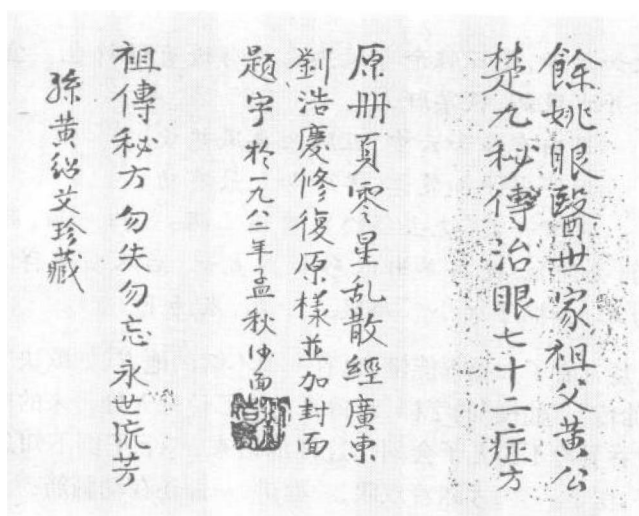 餘姚眼醫世家祖父黃公
楚九秘傳治眼七十二症方
原冊頁零星乱散經廣東
劉浩慶修復原樣並加封面
題字於一九八二年孟秋沙面
祖傳秘方勿失勿忘永世流芳
孫黃紹艾珍藏